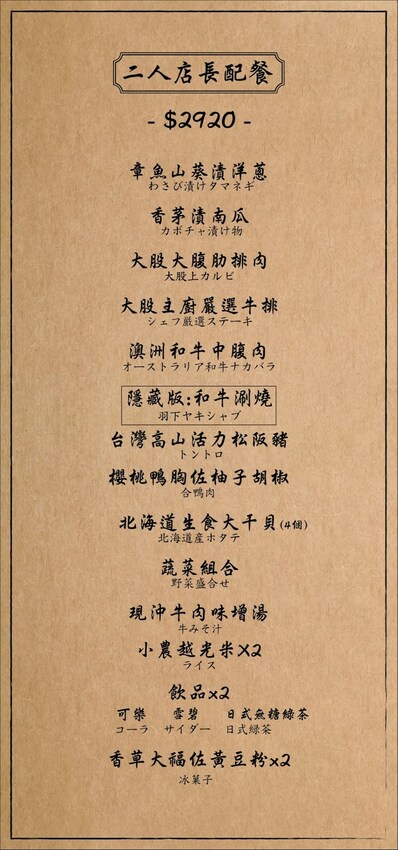 二人店長配餐
- $2920 -
章魚山葵漬洋蔥
わさび漬けタマネギ
香茅漬南瓜
カボチャ漬け物
大股大腹肋排肉
大股上カルビ
大股主廚嚴選牛排
シェフ厳選ステーキ
澳洲和牛中腹肉
オーストラリア和牛ナカバラ
隱藏版:和牛涮燒
羽下ヤキシャブ
台灣高山活力松阪豬
トントロ
櫻桃鴨胸佐柚子胡椒
合鴨肉
北海道生食大干貝(4個)
北海道産ホタテ
蔬菜組合
野菜盛合せ
現沖牛肉味增湯
牛みそ汁
小農越光米X2
ライス
飲品x2
可樂 雪碧 日式無糖綠茶
コーラ サイダー 日式緑茶
香草大福佐黃豆粉x2
冰菓子